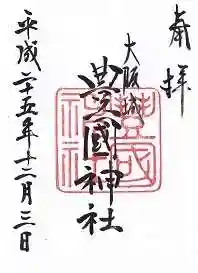 奉拝
大阪城
豊國神社
平成二十五年十二月三日